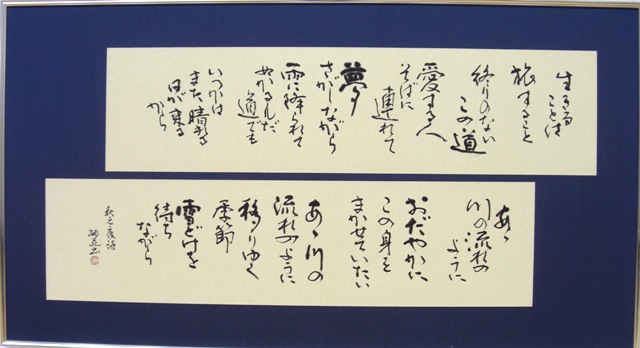 生きる
ことは
旅すること
終りのない
この道
愛する人
そばに
連れて
夢
さがしながら
雨に降られて
ぬかるんだ
道でも
いつかは
また晴れる
日が来る
から
あゝ
川の流れの
ように
おだやかに
この身を
まかせていたい
あゝ川の
流れのように
移りゆく
季節
雪どけを
待ち
ながら
秋元康詩